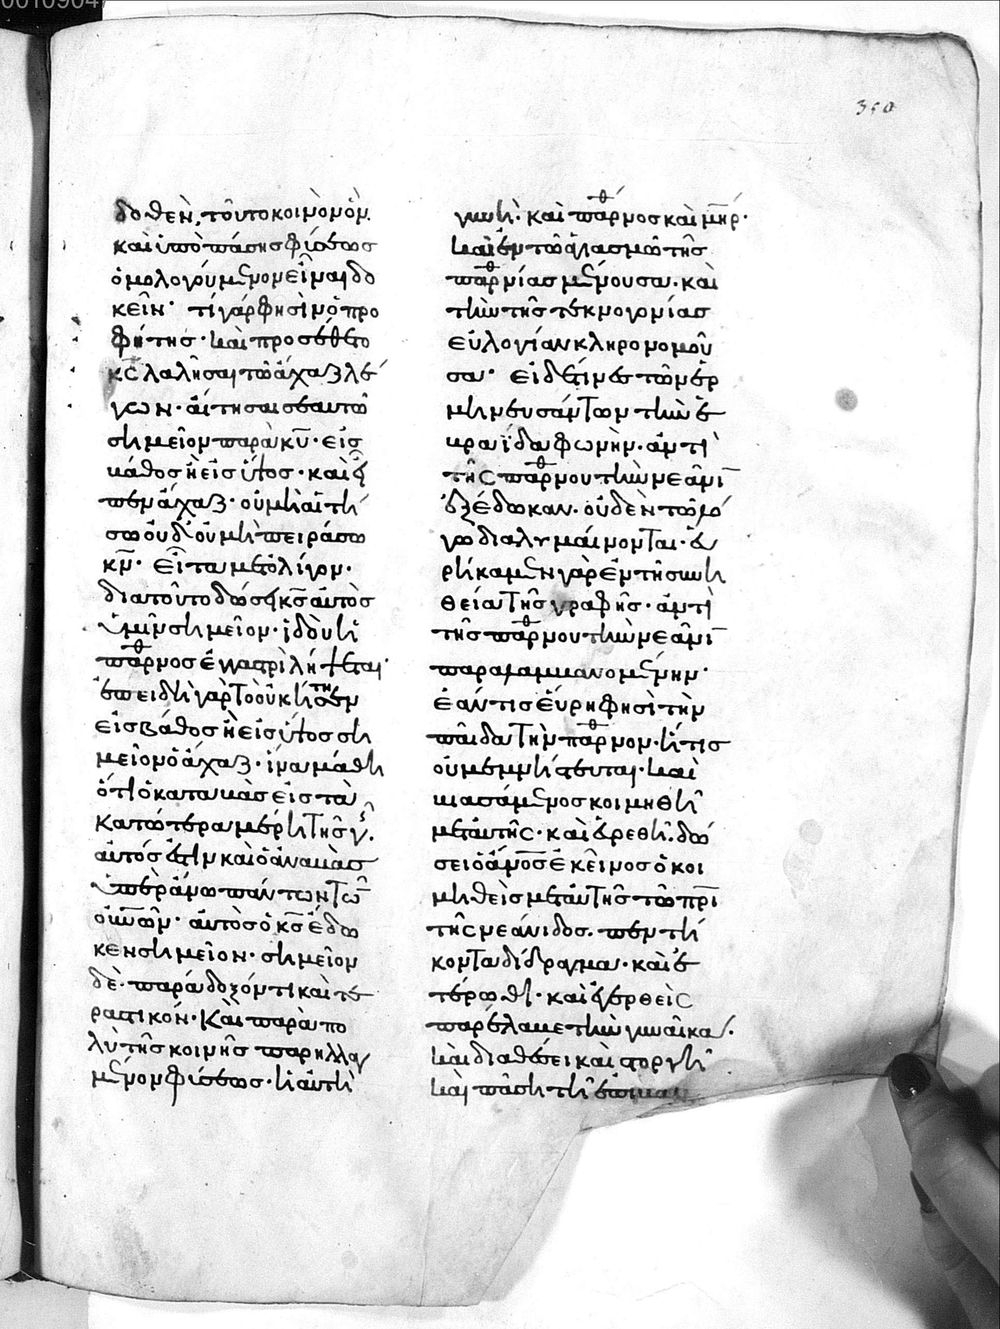 350
δοθὲν, τοῦτο κοινὸν ὂν
καὶ ὑπὸ πάσης φύσεως
ὁμολογούμενον εἶναι δο
κεῖν· τί γάρ φησιν ὁ προ
φήτης· καὶ προσέθετο
κς λαλῆσαι τῶ ἄχαζ λέ
γων· αἴτησαι σεαυτῶ
σημεῖον παρὰ κυ· εἰς
βάθος ἢ εἰς ὕψος· καὶ εἶ
πεν ἄχαζ· οὐ μὴ αἰτή
σω οὐδ' οὐ μὴ πειράσω
κν· εἶτα μετ' ὀλίγον·
διατοῦτο δώσει κς αὐτὸς
ὑμῖν σημεῖον· ἰδοὺ ἡ
παρθνος ἐν γαστρὶ λήψεται·
ἐπειδὴ γὰρ τὸ οὐκ ἤτησεν
εἰς βάθος ἢ εἰς ὕψος ση
μεῖον ὁ ἄχαζ· ἵνα μάθη
ὅτι ὁ καταβὰς εἰς τὰ
κατώτερα μέρη τῆς γῆς.
αὐτός ἐστιν καὶ ὁ ἀναβὰς
ὑπεράνω πάντων τῶν
οὐνῶν· αὐτὸς ὁ κς ἔδω
κεν σημεῖον· σημεῖον
δὲ· παράδοξόν τι καὶ τε
ρατικόν· Καὶ παρὰ πο
λὺ τῆς κοινῆς παρηλλαγ
μένον φύσεως· ἡ αὐτὴ
γυνὴ· καὶ παρθνος καὶ μηρ·
καὶ ἐν τῶ ἁγιασμῶ τῆς
παρθνίας μένουσα· καὶ
τὴν τῆς τεκνογονίας
εὐλογίαν κληρονομοῦ
σα· εἰ δέ τινες τῶν ἑρ
μηνευσάντων τὴν ἑ
βραΐδα φωνὴν· ἀντὶ
τῆς παρθνου τὴν νεᾶνιν
ἐξέδωκαν· οὐδὲν τῶ λό
γω διαλυμαίνονται· εὑ
ρήκαμεν γὰρ ἐν τῆ συνη
θεία τῆς γραφῆς· ἀντὶ
τῆς παρθνου τὴν νεᾶνιν
παραλαμβανομένην·
ἐάν τις εὕρη φησὶ τὴν
παῖδα τὴν παρθνον· ἥτις
οὐ μεμνήστευται· καὶ
βιασάμενος κοιμηθῆ
μετ' αὐτῆς· καὶ εὑρεθῆ· δώ
σει ὁ ἄνος ἐκεῖνος ὁ κοι
μηθεὶς μετ' αὐτῆς τῶ πρι
τῆς νεάνιδος· πεντή
κοντα δίδραγμα· καὶ ἑ
τέρωθι· καὶ εὑρεθεὶς
παρέλαβε τὴν γυναῖκα·
καὶ διαθέσει καὶ στοργῆ
καὶ πάση τῆ